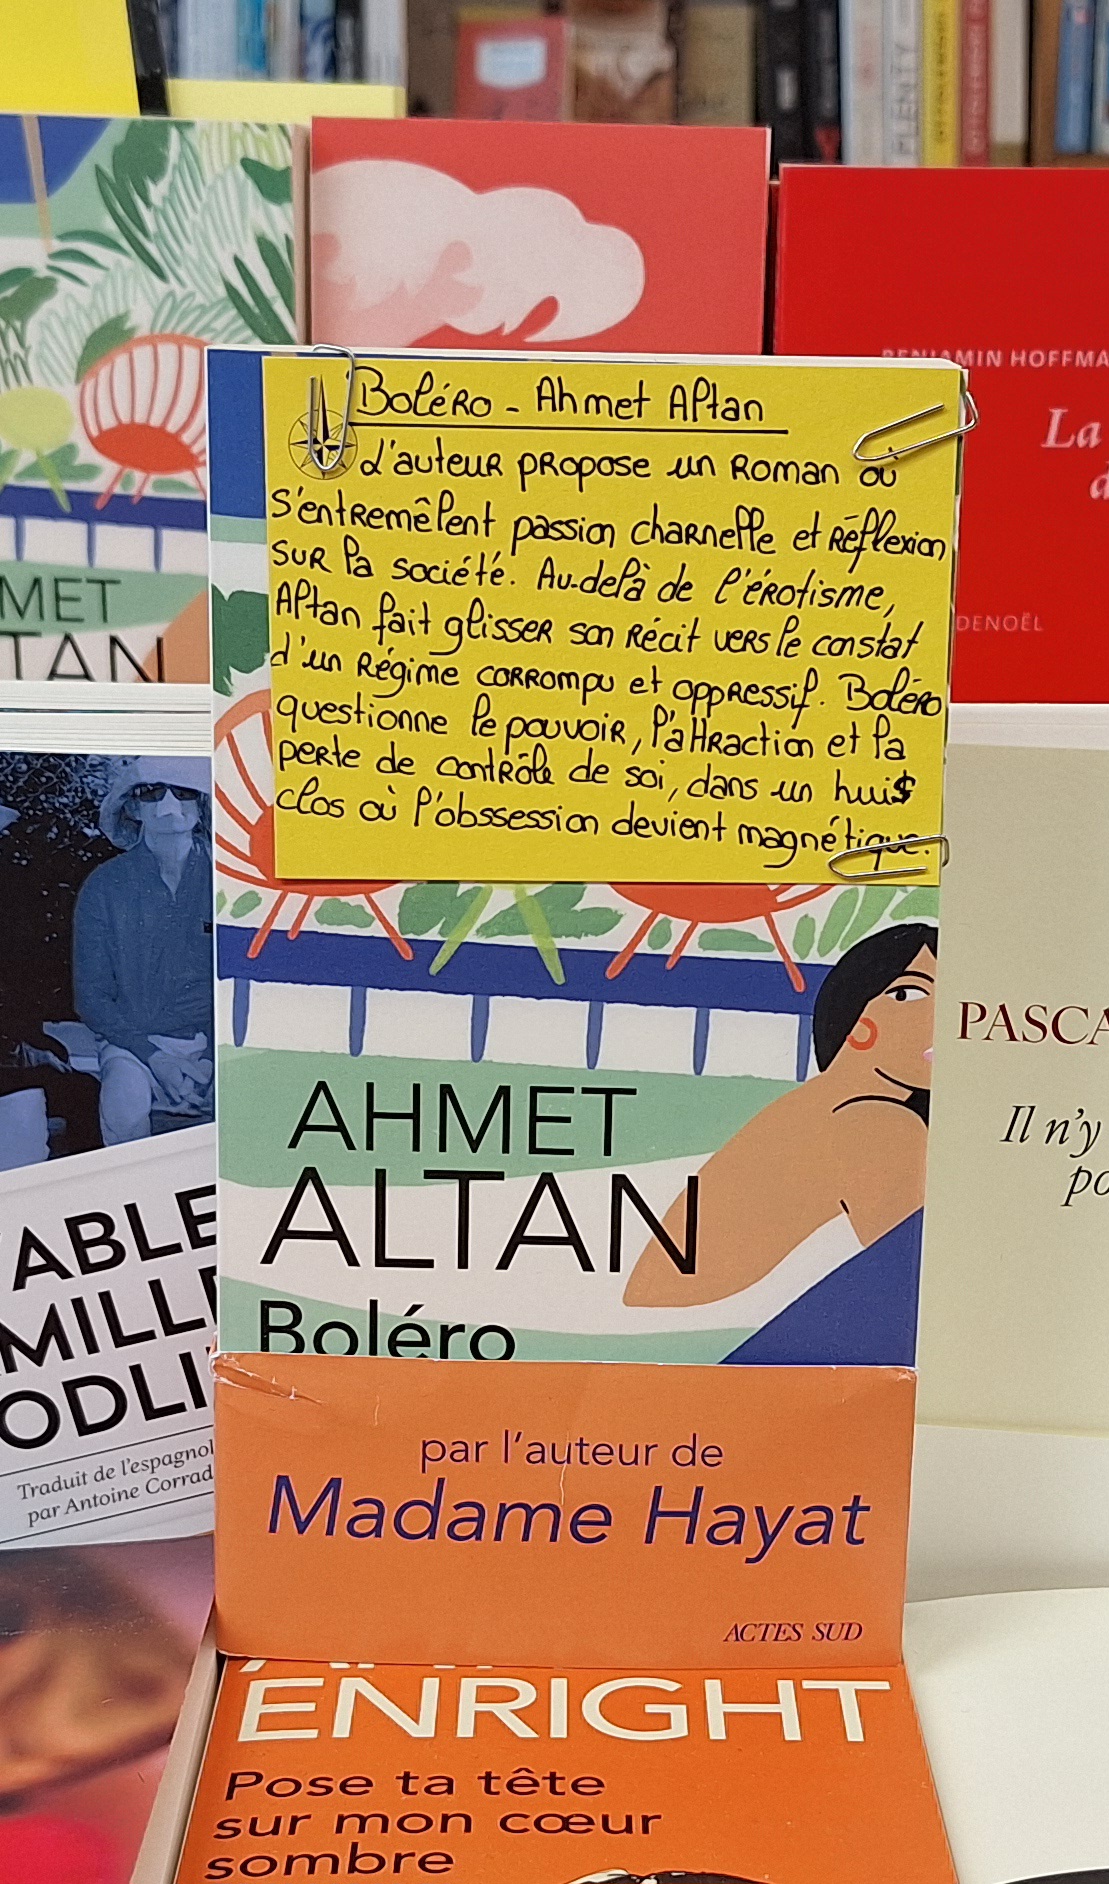 PLENTY
BENJAMIN HOFFMA
La
d
DENOËL
MET
TAN
Boléro - Ahmet Altan
L'auteur propose un roman où
s'entremêlent passion charnelle et réflexion
sur la société. Au-delà de l'érotisme,
Altan fait glisser son récit vers le constat
d'un régime corrompu et oppressif. Boléro
questionne le pouvoir, l'attraction et la
perte de contrôle de soi, dans un huis
clos où l'obssession devient magnétique.
AHMET
ALTAN
Boléro
par l'auteur de
Madame Hayat
ACTES SUD
ABLE
MILL
ODLI
Traduit de l'espagnol
par Antoine Corrad
PASCA
Il n'y
po
ENRIGHT
Pose ta tête
sur mon cœur
sombre